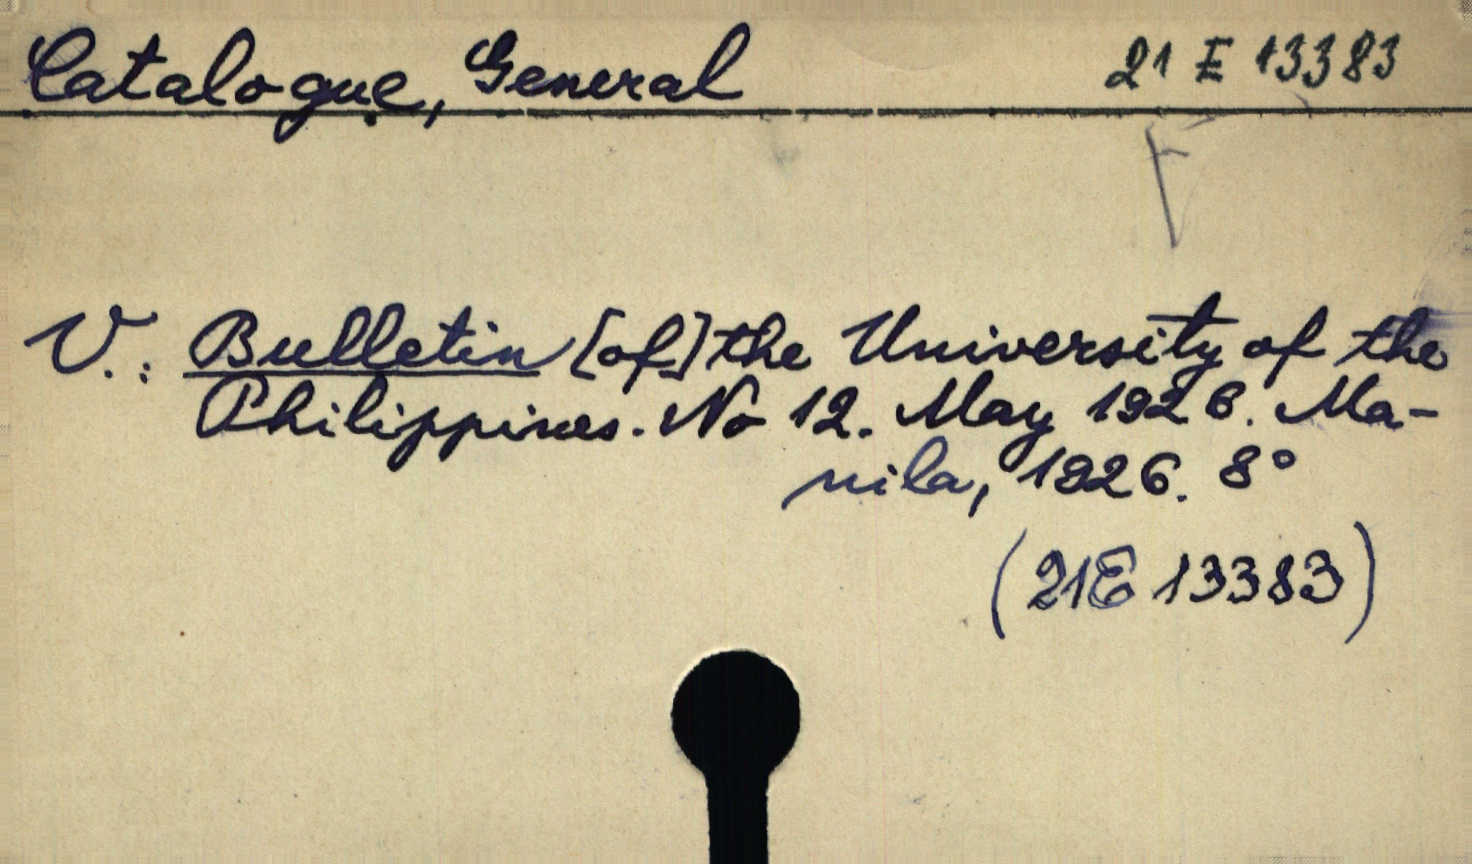 Catalogue, General 21 E 13383
V.: Bulletin [of] the University of the
Philippines. No 12. May 1926. Ma-
nila, 1926. 8°
(21E 13383)